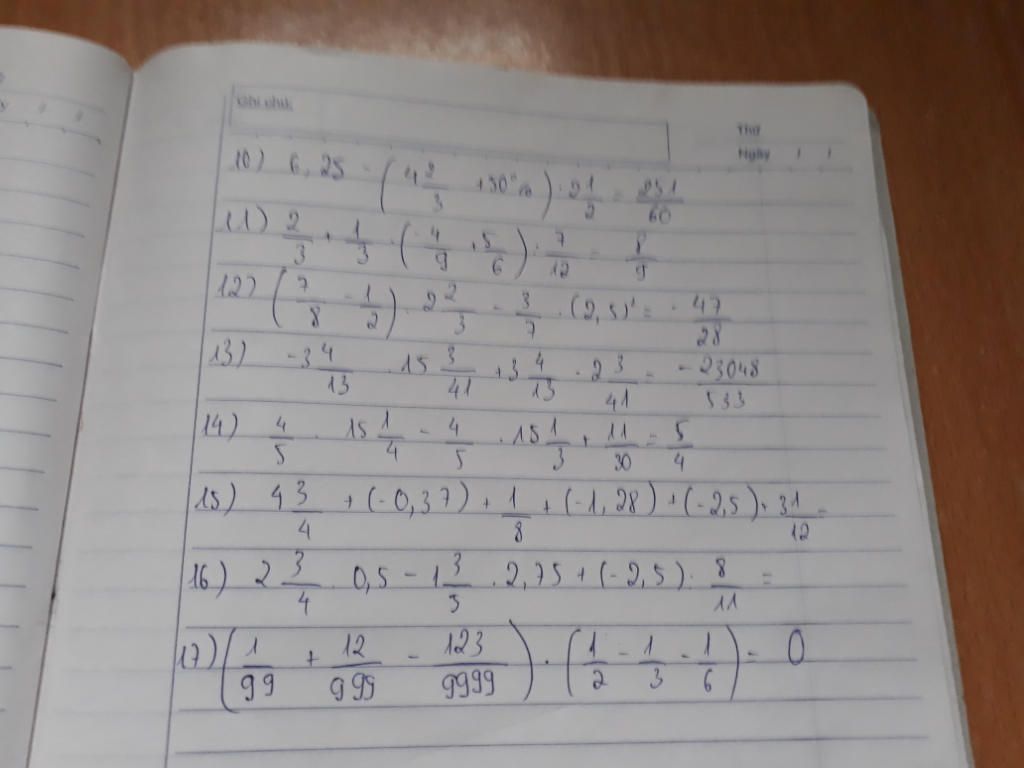 Ghi chú:
Thứ
Ngày / /
10) 6,25 - (4 2/3 + 50%) · 2 1/2 = 251/60
11) 2/3 + 1/3 · (-4/9 + 5/6) · 7/12 = 8/9
12) (7/8 - 1/2) · 2 2/3 - 3/7 · (2,5)¹ = -47/28
13) -3 4/13 · 15 3/41 + 3 4/13 · 2 3/41 = -23048/533
14) 4/5 · 15 1/4 - 4/5 · 15 1/3 + 11/30 = 5/4
15) 4 3/4 + (-0,37) + 1/8 + (-1,28) + (-2,5) + 31/12 =
16) 2 3/4 · 0,5 - 1 3/5 · 2,75 + (-2,5) · 8/11 =
17) (1/99 + 12/999 - 123/9999) · (1/2 - 1/3 - 1/6) = 0